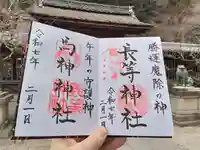 勝運魔除の神
長等神社
令和七年
二月一日
午年の守護神
馬神神社
令和七年
二月一日